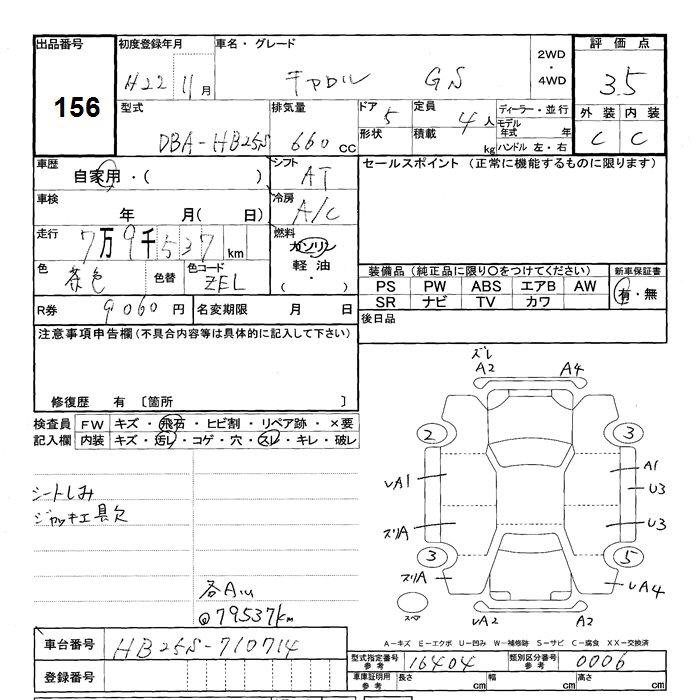 出品番号 初度登録年月 車名・グレード 2WD・4WD 評価点
156
H22 11月 キャロル GS 3.5
型式 排気量 ドア 5 定員 4人 ディーラー・並行 外装 内装
DBA-HB25S 660cc 形状 積載 kg モデル年式 年 C C
ハンドル 左・右
車歴 自家用・( ) シフト AT セールスポイント (正常に機能するものに限ります)
車検 年 月( 日) 冷房 A/C
走行 7万9千537km 燃料 ガソリン
軽油
( ・ )
色 茶色 色替 色コード ZEL
装備品(純正品に限り○をつけてください) 新車保証書
PS PW ABS エアB AW 有・無
SR ナビ TV カワ
R券 9060円 名変期限 月 日 後日品
注意事項申告欄(不具合内容等は具体的に記入して下さい)
修復歴 有 〔箇所 〕
検査員 FW キズ・飛石・ヒビ割・リペア跡・×要
記入欄 内装 キズ・汚レ・コゲ・穴・スレ・キレ・破レ
シートしみ
ジャッキ工具欠
各Aiu
@79537km
ズレ
A2 A4
2 3
UA1 A1
U3
ズリA U3
3 5
ズリA UA4
スペア UA2 A2
A-キズ E-エクボ U-凹み W-補修跡 S-サビ C-腐食 XX-交換済
車台番号 HB25S-710714
型式指定番号 参考 16404 類別区分番号 参考 0006
登録番号 車庫証明用 参考 長さ cm 幅 cm 高さ cm